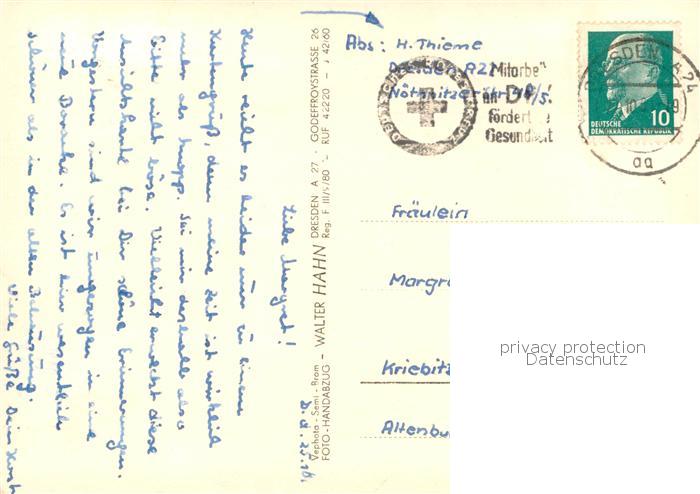 D. d. 25.10.
Liebe Margret!
Heute reicht es leider nur zu einem
Kartengruß, denn meine Zeit ist wirklich
mehr als knapp. Sei mir deshalb also
bitte nicht böse. Vielleicht erweckst diese
Ansichtskarte bei Dir schöne Erinnerungen.
Umgehend sind wir umgezogen in eine
neue Baracke. Es ist hier wesentlich
schöner als in der alten Behausung.
Viele Grüße Dein Horst
Vephota - Semi - Brom
FOTO-HANDABZUG - WALTER HAHN DRESDEN A 27 - GODEFFROYSTRASSE 26
Reg. F III/5/80 - RUF 42220 - J 42/60
Abs: H. Thieme
Dresden A27
Nöthnitzer Str.
Mitarbeit
im DRK
fördert die
Gesundheit
DRESDEN A 24
DEUTSCHE
DEMOKRATISCHE REPUBLIK 10
aa
Fräulein
Margr
Kriebitz
Altenbu
privacy protection
Datenschutz